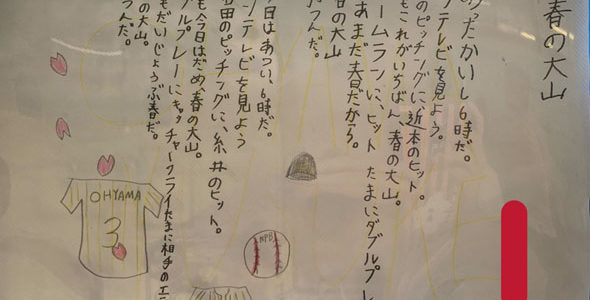 春の大山
ったかいし6時だ。
テレビを見よう。
のピッチングに、近本のヒット。
もこれがいちばん、春の大山。
ームランに、ヒット たまにダブルプレ
あまだ春だから。
春の大山
つんだ。
日はあつい、6時だ。
ンテレビを見よう
田のピッチングに、糸井のヒット。
も今日はだめ、春の大山。
ブルプレーにキャッチャーフライたまに相手のエ
もだいじょうぶ春だ。
の大山。
つんだ。
OHYAMA
3
NPB